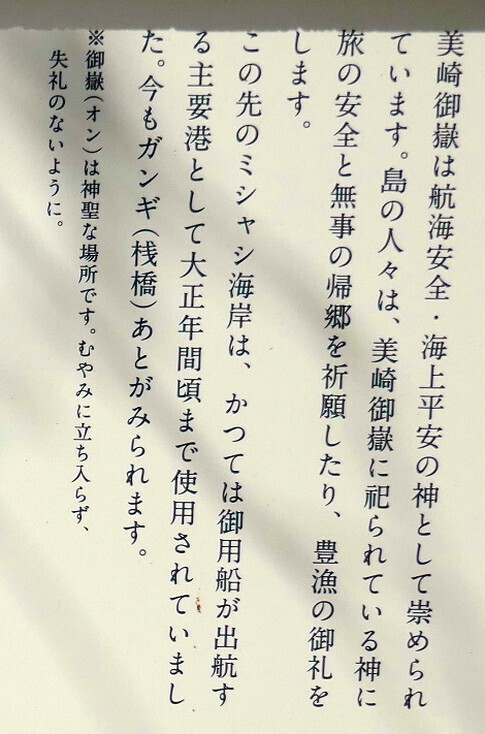 美崎御嶽は航海安全・海上平安の神として崇められ
ています。島の人々は、美崎御嶽に祀られている神に
旅の安全と無事の帰郷を祈願したり、豊漁の御礼を
します。
この先のミシャシ海岸は、かつては御用船が出航す
る主要港として大正年間頃まで使用されていまし
た。今もガンギ（桟橋）あとがみられます。
※御嶽（オン）は神聖な場所です。むやみに立ち入らず、
失礼のないように。